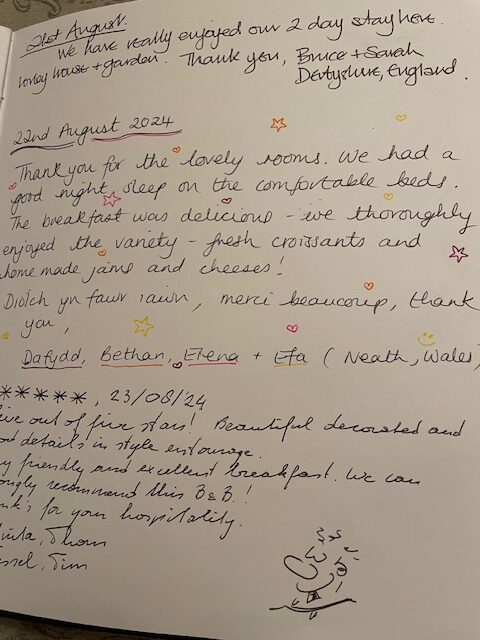 21st August.
We have really enjoyed our 2 day stay here.
lovely house + garden. Thank you, Bruce + Sarah
Derbyshire, England.
22nd August 2024
Thank you for the lovely rooms. We had a
good night sleep on the comfortable beds.
The breakfast was delicious - we thoroughly
enjoyed the variety - fresh croissants and
home made jams and cheeses!
Diolch yn fawr iawn, merci beaucoup, thank
you,
Dafydd, Bethan, Elena + Efa (Neath, Wales)
*****, 23/08/24
ive out of five stars! Beautiful decorated and
od details in style entourage.
y friendly and excellent breakfast. We can
ongly recommend this B&B.!
nk's for your hospitality.
Thom
ssel, Tim